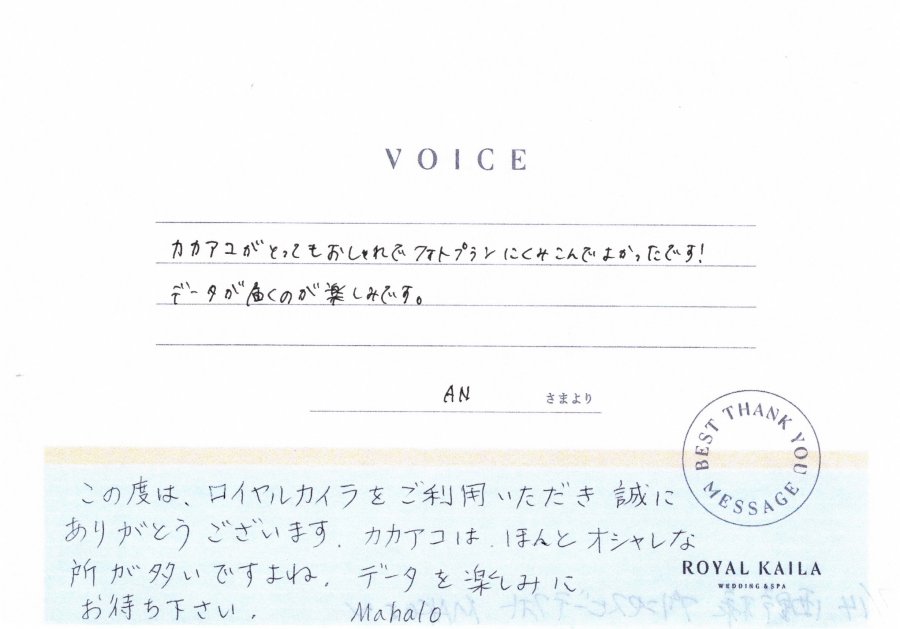 VOICE
カカアコがとってもおしゃれでフォトプランにくみこんでよかったです!
データが届くのが楽しみです。
AN さまより
BEST THANK YOU MESSAGE
この度は、ロイヤルカイラをご利用いただき誠に
ありがとうございます. カカアコは、ほんとオシャレな
所が多いですよね. データを楽しみに
お待ち下さい. Mahalo
ROYAL KAILA
WEDDING & SPA